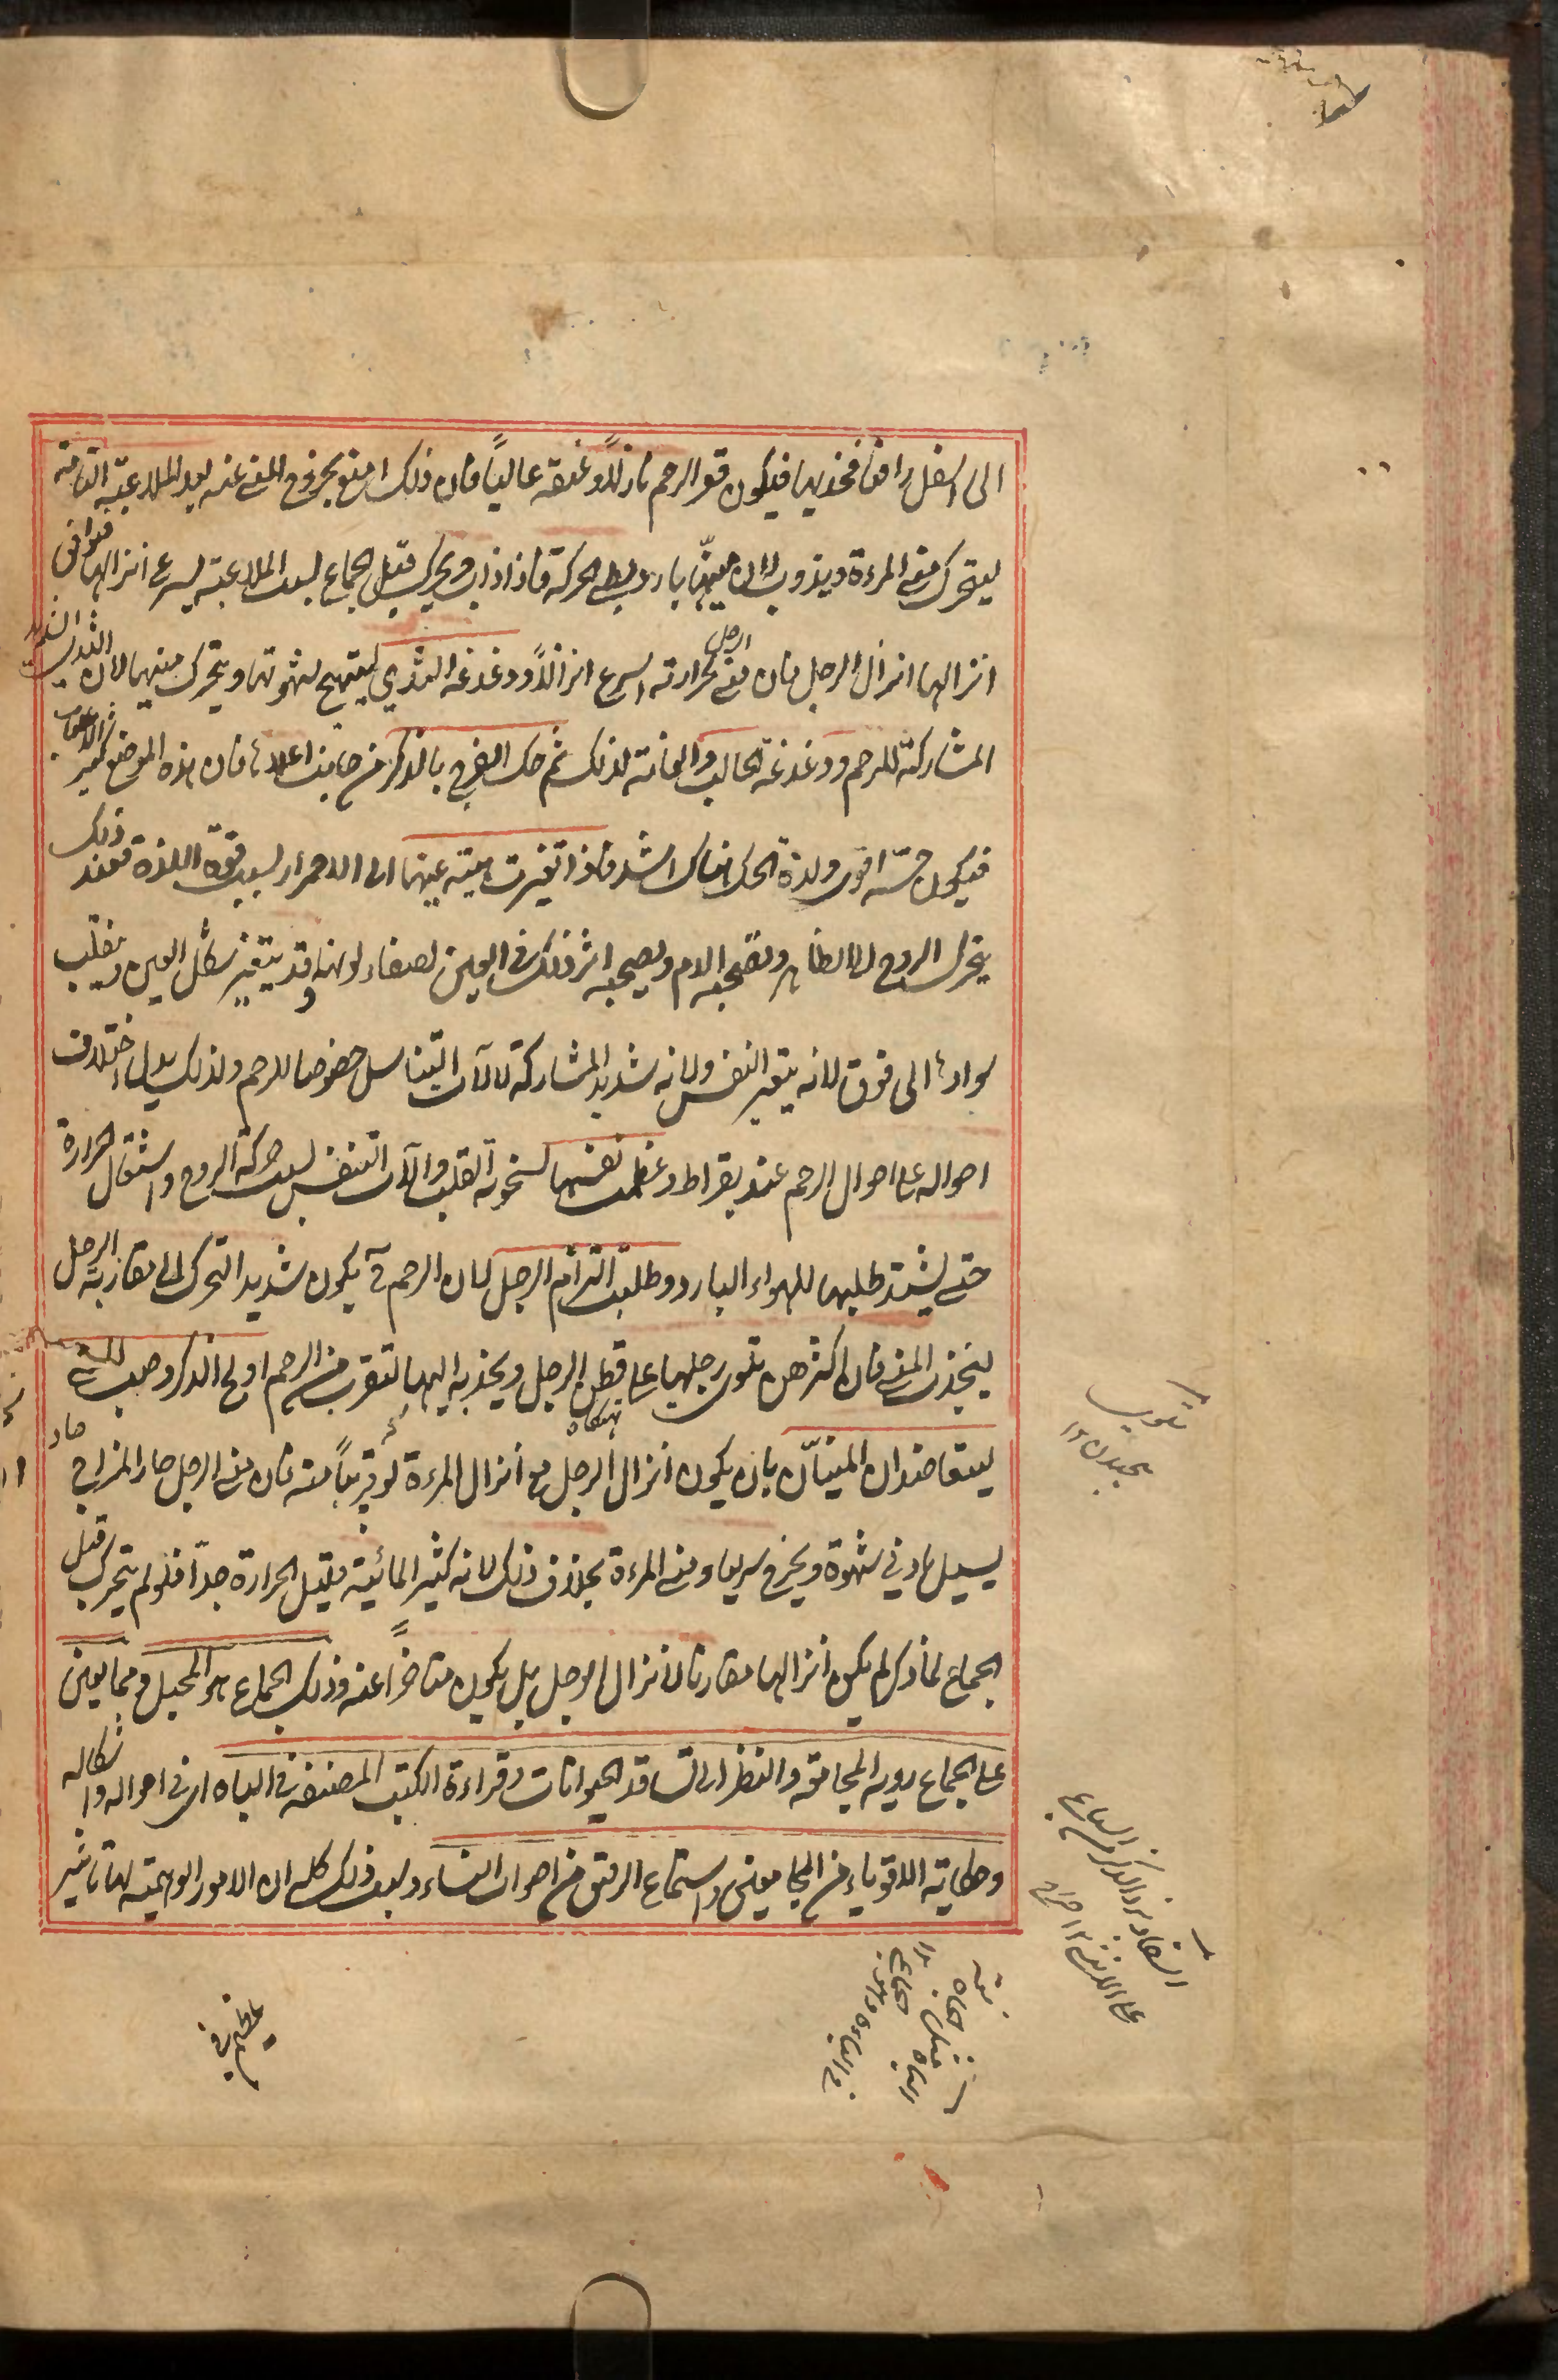 الى اسفل رافعا فخذيها فيكون قعر الرحم نازلاً وعنقه عالياً فان ذلك امنع بخروج المنى عنه بعد الملاعبة التامة
ليتحرك منى المرءة ويذوب لان منيها بارد بطئ الحركة فاذا ذاب وتحرك قبل الجماع بسبب الملاعبة يسرع انزالها فيوافق
انزالها انزال الرجل فان منى الرجل لحرارته اسرع انزالاً ودغدغة الثدي ليتهيج شهوتها ويتحرك منيها لان الثدي شديد
المشاركة للرحم ودغدغة الحالب والعانة لذلك ثم حك الفرج بالذكر من جانب اعلاه فان هذه الموضع كثير الاعصاب
فيكون حسه اقوى ولذة الحك هناك اشد فاذا تغيرت هيئة عينها الى الاحمرار بسبب قوة اللذة فعند ذلك
يتحرك الروح الى الظاهر وتصحبه الدم ويصحبه اثر ذلك في العين لصفاء لونه وقد يتغير شكل العين وينقلب
سوادها الى فوق لانه يتغير النفس ولانه شديد المشاركة لالات التناسل خصوصا للرحم ولذلك يدل اختلاف
احواله على احوال الرحم عند بقراط وعظمت نفسها لسخونة القلب والآت التنفس بسبب حركة الروح واشتعال الحرارة
حتى يشتد طلبها للهواء البارد وطلبت التزام الرجل لان الرحم ح يكون شديد التحرك الى مقاربة الرجل
ليجذب المنى فان اكثرهن تلوى رجليها على قطن الرجل ويجذبه اليها لتقرب فم الرحم اولج الذكر وصب المنى
ليتعاضد المنيان بان يكون انزال الرجل مع انزال المرءة او قريباً منه فان منى الرجل حار المزاج حاد
يسيل بادنى شهوة ويخرج سريعا ومنى المرءة بخلاف ذلك لانه كثير المائية قليل الحرارة جداً فلو لم يتحرك قبل
الجماع لما ذكر لم يكن انزالها مقارنا لانزال الرجل بل يكون متاخراً عنه وذلك الجماع هو المحبل ومما يعين
على الجماع روية المجامعة والنظر الى تسافد الحيوانات وقراءة الكتب المصنفة في الباه اى في احواله واشكاله
وحكاية الاقوياء من المجامعين واستماع الرقيق من اصوات النساء وسبب ذلك كله ان الامور الوهمية لها تاثير